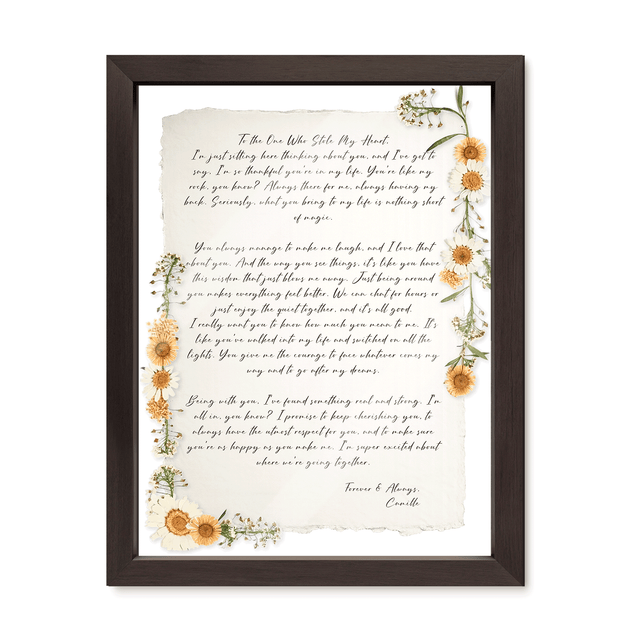 To the One Who Stole My Heart,
I'm just sitting here thinking about you, and I've got to
say, I'm so thankful you're in my life. You're like my
rock, you know? Always there for me, always having my
back. Seriously, what you bring to my life is nothing short
of magic.
You always manage to make me laugh, and I love that
about you. And the way you see things, it's like you have
this wisdom that just blows me away. Just being around
you makes everything feel better. We can chat for hours or
just enjoy the quiet together, and it's all good.
I really want you to know how much you mean to me. It's
like you've walked into my life and switched on all the
lights. You give me the courage to face whatever comes my
way and to go after my dreams.
Being with you, I've found something real and strong. I'm
all in, you know? I promise to keep cherishing you, to
always have the utmost respect for you, and to make sure
you're as happy as you make me. I'm super excited about
where we're going together.
Forever & Always,
Camille